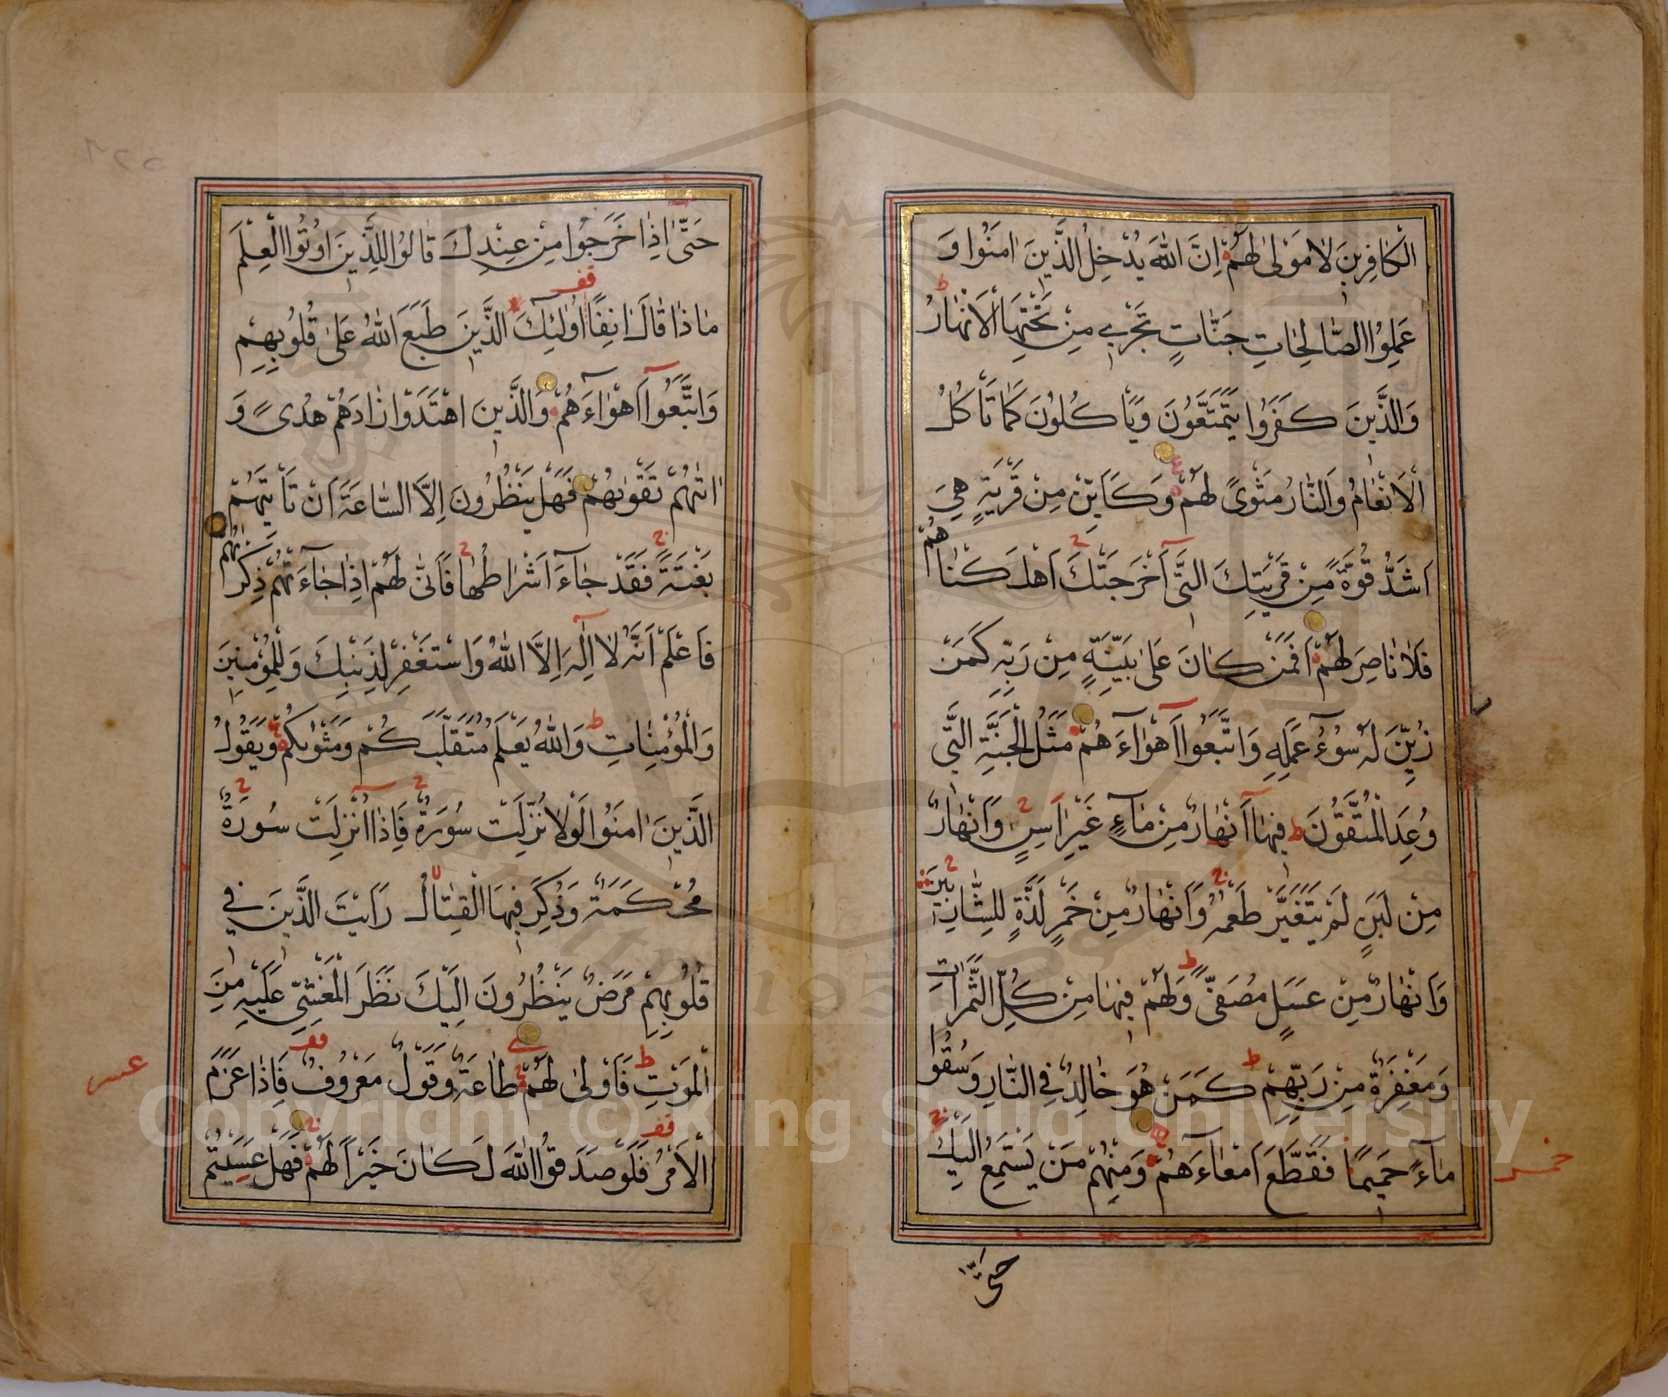 الْكَافِرِينَ لَا مَوْلٰى لَهُمْ اِنَّ اللّٰهَ يُدْخِلُ الَّذِينَ اٰمَنُوا وَ
عَمِلُوا الصَّالِحَاتِ جَنَّاتٍ تَجْرِي مِنْ تَحْتِهَا الْاَنْهَارُ
وَالَّذِينَ كَفَرُوا يَتَمَتَّعُونَ وَيَأْكُلُونَ كَمَا تَأْكُلُ
الْاَنْعَامُ وَالنَّارُ مَثْوًى لَهُمْ وَكَاَيِّنْ مِنْ قَرْيَةٍ هِيَ
اَشَدُّ قُوَّةً مِنْ قَرْيَتِكَ الَّتِي اَخْرَجَتْكَ اَهْلَكْنَاهُمْ
فَلَا نَاصِرَ لَهُمْ اَفَمَنْ كَانَ عَلٰى بَيِّنَةٍ مِنْ رَبِّهِ كَمَنْ
زُيِّنَ لَهُ سُوْءُ عَمَلِهِ وَاتَّبَعُوا اَهْوَاءَهُمْ مَثَلُ الْجَنَّةِ الَّتِي
وُعِدَ الْمُتَّقُونَ فِيهَا اَنْهَارٌ مِنْ مَاءٍ غَيْرِ اٰسِنٍ وَاَنْهَارٌ
مِنْ لَبَنٍ لَمْ يَتَغَيَّرْ طَعْمُهُ وَاَنْهَارٌ مِنْ خَمْرٍ لَذَّةٍ لِلشَّارِبِينَ
وَاَنْهَارٌ مِنْ عَسَلٍ مُصَفًّى وَلَهُمْ فِيهَا مِنْ كُلِّ الثَّمَرَاتِ
وَمَغْفِرَةٌ مِنْ رَبِّهِمْ كَمَنْ هُوَ خَالِدٌ فِي النَّارِ وَسُقُوا
مَاءً حَمِيمًا فَقَطَّعَ اَمْعَاءَهُمْ وَمِنْهُمْ مَنْ يَسْتَمِعُ اِلَيْكَ
خمس
حَتّٰى
حَتّٰى اِذَا خَرَجُوا مِنْ عِنْدِكَ قَالُوا لِلَّذِينَ اُوتُوا الْعِلْمَ
مَاذَا قَالَ اٰنِفًا اُولٰئِكَ الَّذِينَ طَبَعَ اللّٰهُ عَلٰى قُلُوبِهِمْ
وَاتَّبَعُوا اَهْوَاءَهُمْ وَالَّذِينَ اهْتَدَوْا زَادَهُمْ هُدًى وَ
اٰتٰيهُمْ تَقْوٰيهُمْ فَهَلْ يَنْظُرُونَ اِلَّا السَّاعَةَ اَنْ تَأْتِيَهُمْ
بَغْتَةً فَقَدْ جَاءَ اَشْرَاطُهَا فَاَنّٰى لَهُمْ اِذَا جَاءَتْهُمْ ذِكْرٰيهُمْ
فَاعْلَمْ اَنَّهُ لَا اِلٰهَ اِلَّا اللّٰهُ وَاسْتَغْفِرْ لِذَنْبِكَ وَلِلْمُؤْمِنِينَ
وَالْمُؤْمِنَاتِ وَاللّٰهُ يَعْلَمُ مُتَقَلَّبَكُمْ وَمَثْوٰيكُمْ وَيَقُولُ
الَّذِينَ اٰمَنُوا لَوْلَا نُزِّلَتْ سُورَةٌ فَاِذَا اُنْزِلَتْ سُورَةٌ
مُحْكَمَةٌ وَذُكِرَ فِيهَا الْقِتَالُ رَاَيْتَ الَّذِينَ فِي
قُلُوبِهِمْ مَرَضٌ يَنْظُرُونَ اِلَيْكَ نَظَرَ الْمَغْشِيِّ عَلَيْهِ مِنَ
الْمَوْتِ فَاَوْلٰى لَهُمْ طَاعَةٌ وَقَوْلٌ مَعْرُوفٌ فَاِذَا عَزَمَ
الْاَمْرُ فَلَوْ صَدَقُوا اللّٰهَ لَكَانَ خَيْرًا لَهُمْ فَهَلْ عَسَيْتُمْ
عشر
Copyright © King Saud University